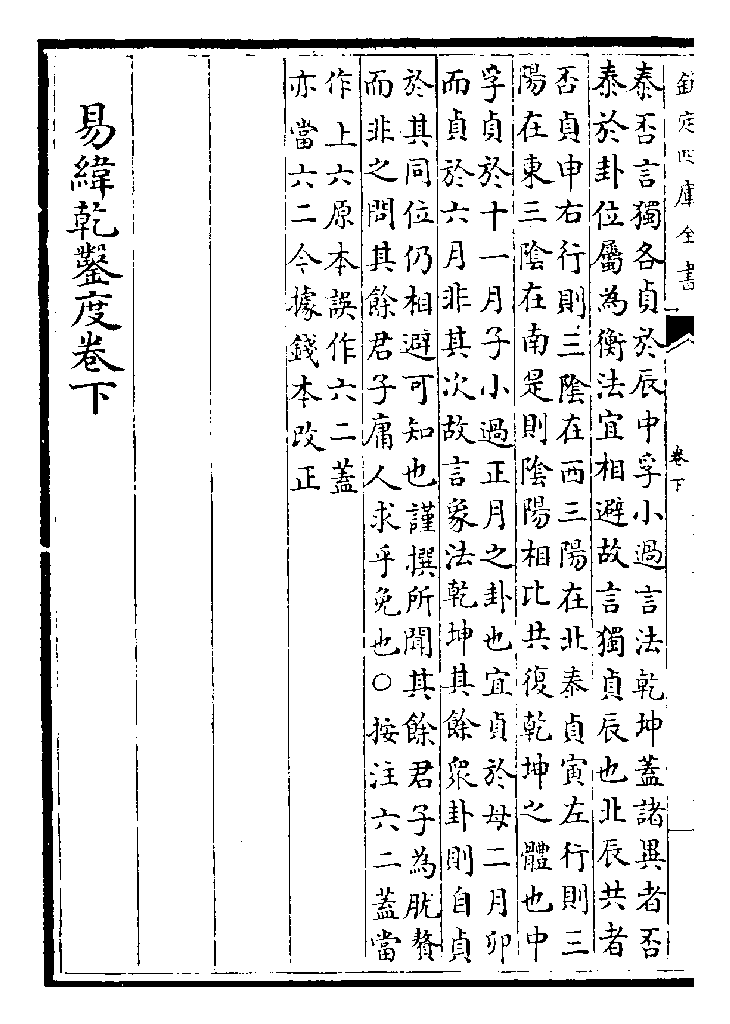 欽定四庫全書
卷下
泰否言獨各貞於辰中孚小過言法乾坤蓋諸異者否
泰於卦位屬為衡法宜相避故言獨貞辰也北辰共者
否貞申右行則三陰在西三陽在北泰貞寅左行則三
陽在東三陰在南是則陰陽相比共復乾坤之體也中
孚貞於十一月子小過正月之卦也宜貞於母二月卯
而貞於六月非其次故言象法乾坤其餘衆卦則自貞
於其同位仍相避可知也謹撰所聞其餘君子為肬贅
而非之問其餘君子庸人求乎免也○按注六二蓋當
作上六原本誤作六二蓋
亦當六二今據錢本改正
易緯乾鑿度卷下